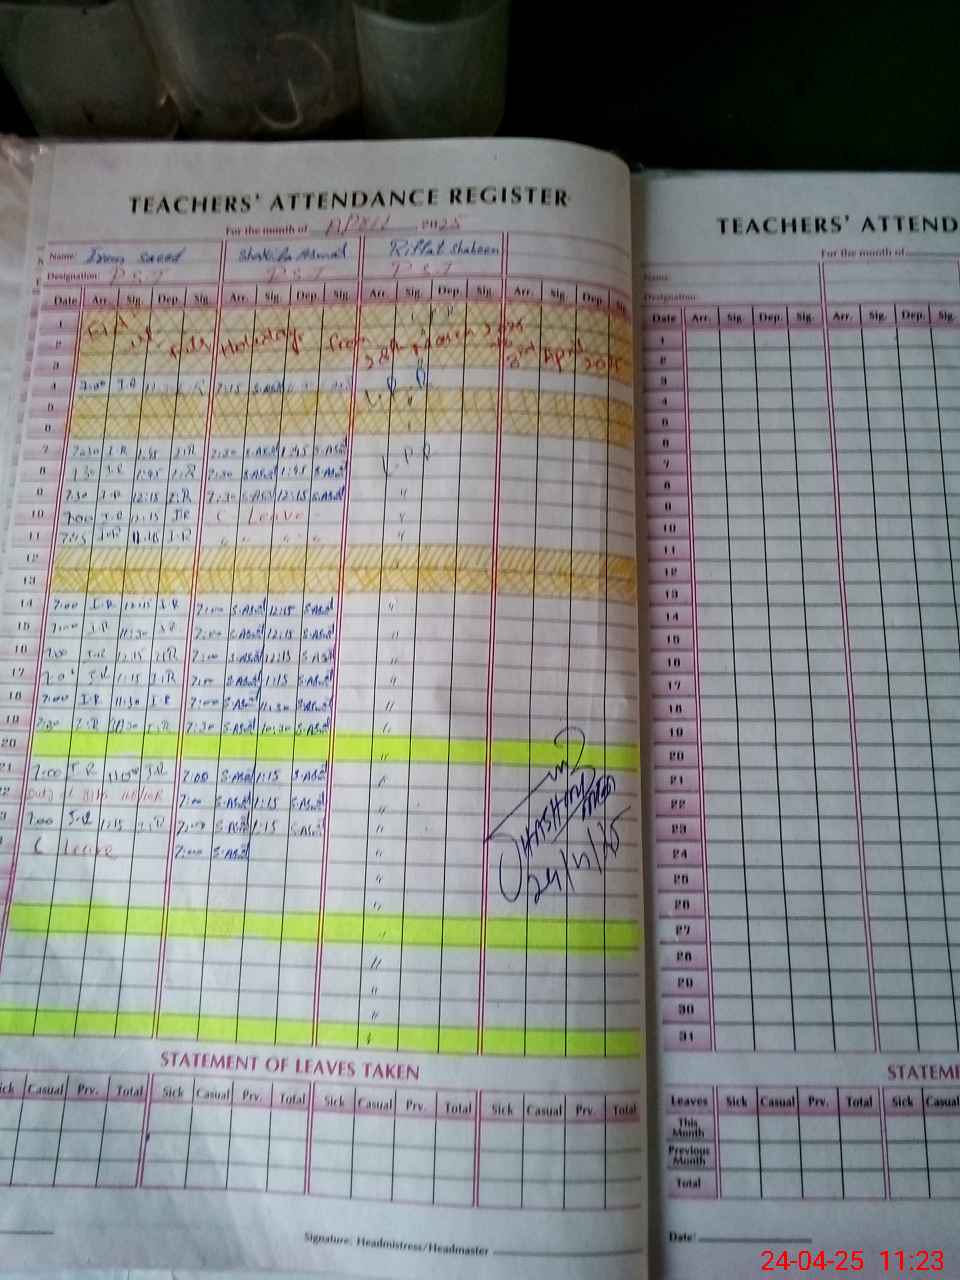 TEACHERS' ATTENDANCE REGISTER
For the month of APRIL 2025
Name: Irum Saeed Shakila Asmat Riffat Shaheen
Designation: P.S.T P.S.T P.S.T
Date Arr. Sig. Dep. Sig. Arr. Sig. Dep. Sig. Arr. Sig. Dep. Sig. Arr. Sig. Dep. Sig.
1
2 Holidays from 28th March 2025
3 3rd April 2025
4 7:00 I.R 7:15 S.Asmat L P R
5
6
7 7:30 I.R 1:45 I.R 7:30 S.Asmat 1:45 S.Asmat L.P.R
8 7:30 I.R 1:45 I.R 7:30 S.Asmat 1:45 S.Asmat
9 7:30 I.R 12:15 I.R 7:30 S.Asmat 12:15 S.Asmat "
10 7:00 I.R 12:15 I.R C Leave "
11 7:15 I.R I.R " " " "
12
13
14 7:00 I.R 12:15 I.R 7:00 S.Asmat 12:15 S.Asmat "
15 7:00 I.R 11:30 I.R 7:00 S.Asmat 12:15 S.Asmat "
16 7:00 I.R 12:15 I.R 7:00 S.Asmat 12:15 S.Asmat "
17 7:00 I.R 1:15 I.R 7:00 S.Asmat 1:15 S.Asmat "
18 7:00 I.R 11:30 I.R 7:00 S.Asmat 11:30 S.Asmat "
19 7:30 I.R 10:30 I.R 7:30 S.Asmat 10:30 S.Asmat "
20 "
21 7:00 I.R I.R 7:00 S.Asmat 1:15 S.Asmat "
2 7:00 S.Asmat 1:15 S.Asmat "
3 7:00 I.R 1:15 I.R 7:00 S.Asmat 1:15 S.Asmat "
C Leave 7:00 S.Asmat "
"
"
"
"
"
"
HASHIM
24/4/25
STATEMENT OF LEAVES TAKEN
ick Casual Prv. Total Sick Casual Prv. Total Sick Casual Prv. Total Sick Casual Prv. Total
Signature: Headmistress/Headmaster
TEACHERS' ATTEND
For the month of
Name:
Designation:
Date Arr. Sig. Dep. Sig. Arr. Sig. Dep. Sig.
1
2
3
4
5
6
7
8
9
10
11
12
13
14
15
16
17
18
19
20
21
22
23
24
25
26
27
28
29
30
31
STATEME
Leaves Sick Casual Prv. Total Sick Casual
This Month
Previous Month
Total
Date:
24-04-25 11:23